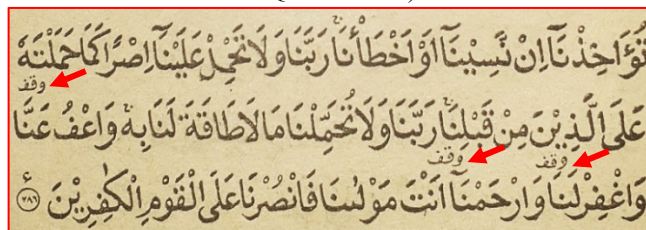 تُؤَاخِذْنَآ اِنْ نَّسِيْنَآ اَوْ اَخْطَأْنَا ۚ رَبَّنَا وَلَا تَحْمِلْ عَلَيْنَآ اِصْرًا كَمَا حَمَلْتَهٗ
وقف
عَلَى الَّذِيْنَ مِنْ قَبْلِنَا ۚ رَبَّنَا وَلَا تُحَمِّلْنَا مَا لَا طَاقَةَ لَنَا بِهٖ ۚ وَاعْفُ عَنَّا
وقف وقف
وَاغْفِرْ لَنَا وَارْحَمْنَآ اَنْتَ مَوْلٰىنَا فَانْصُرْنَا عَلَى الْقَوْمِ الْكٰفِرِيْنَ ۝٢٨٦